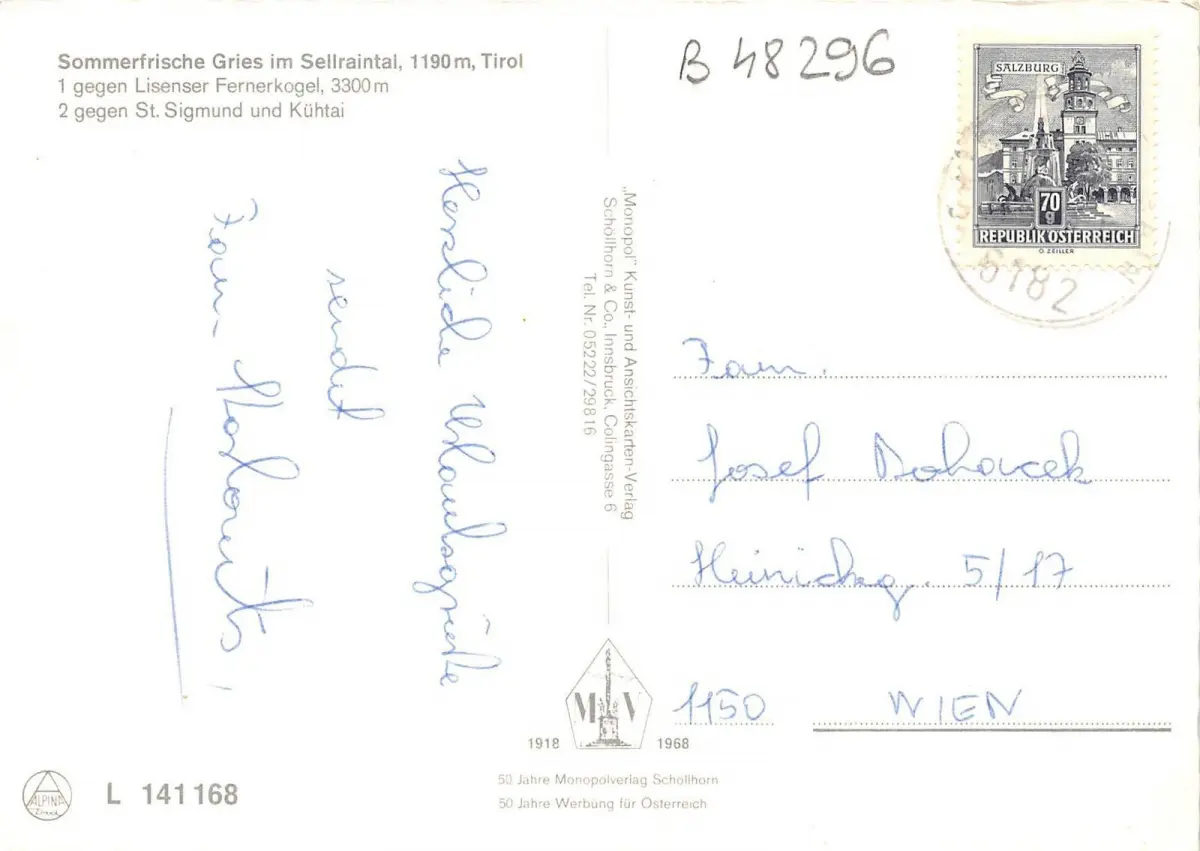 Sommerfrische Gries im Sellraintal, 1190 m, Tirol
1 gegen Lisenser Fernerkogel, 3300 m
2 gegen St. Sigmund und Kühtai
B 48296
SALZBURG
70
g
REPUBLIK ÖSTERREICH
O. ZEILLER
6182
Herzliche Urlaubsgrüße
sendet
Fam.
„Monopol" Kunst- und Ansichtskarten-Verlag
Schöllhorn & Co., Innsbruck, Colingasse 6
Tel. Nr. 05222/29816
Fam.
Josef
5/17
1150 WIEN
M V
1918 1968
50 Jahre Monopolverlag Schöllhorn
50 Jahre Werbung für Österreich
ALPINA
L 141168